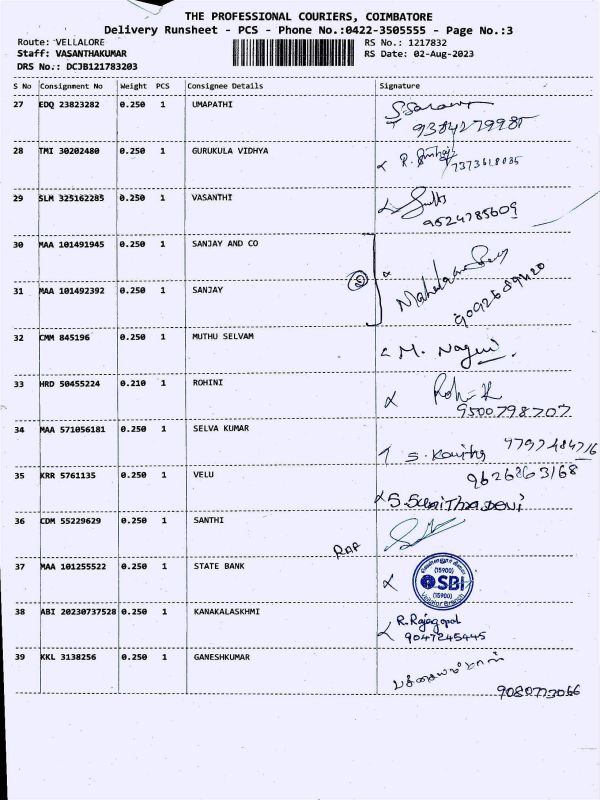 THE PROFESSIONAL COURIERS, COIMBATORE
Delivery Runsheet - PCS - Phone No.:0422-3505555 - Page No.:3
Route: VELLALORE RS No.: 1217832
Staff: VASANTHAKUMAR RS Date: 02-Aug-2023
DRS No.: DCJB121783203
S No Consignment No Weight PCS Consignee Details Signature
27 EDQ 23823282 0.250 1 UMAPATHI
28 TMI 30202480 0.250 1 GURUKULA VIDHYA
29 SLM 325162285 0.250 1 VASANTHI
9524785609
30 MAA 101491945 0.250 1 SANJAY AND CO
31 MAA 101492392 0.250 1 SANJAY
32 CMM 845196 0.250 1 MUTHU SELVAM
M. Nagui
33 HRD 50455224 0.210 1 ROHINI
9500798707
34 MAA 571056181 0.250 1 SELVA KUMAR
S. Kavitha
35 KRR 5761135 0.250 1 VELU
9626263168
S. Sunitha Devi
36 CDM 55229629 0.250 1 SANTHI
37 MAA 101255522 0.250 1 STATE BANK
(15900)
SBI
(15900)
Vellalor Branch
38 ABI 20230737528 0.250 1 KANAKALASKHMI
R. Rajagopal
9047245445
39 KKL 3138256 0.250 1 GANESHKUMAR